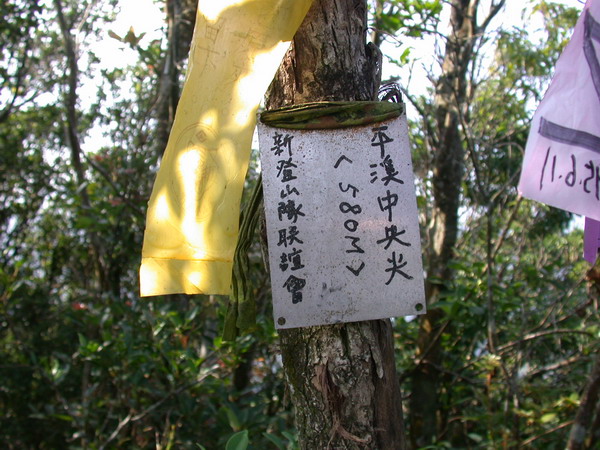 平溪中央尖
<580M>
新登山隊联誼會
5.6.11